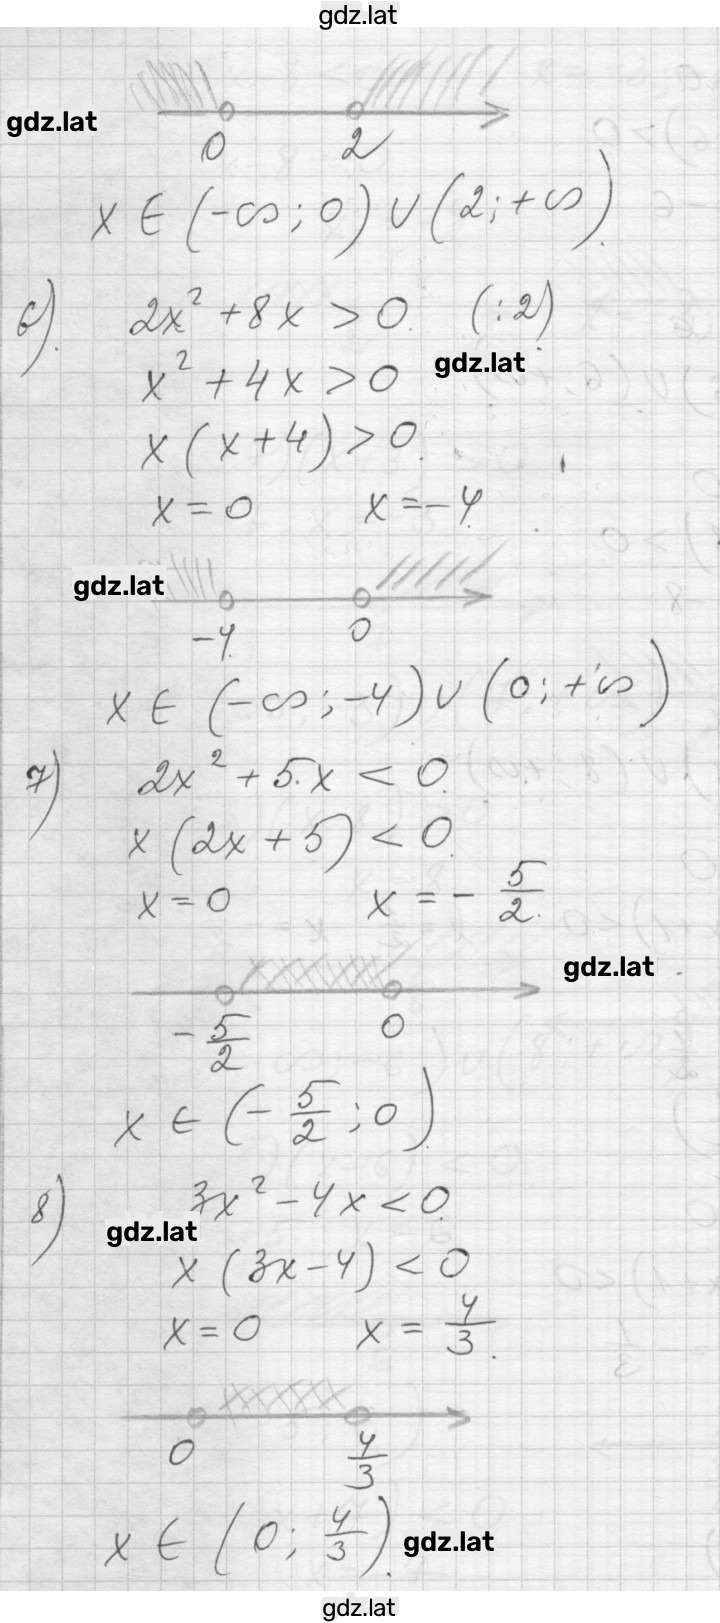 gdz.lat
gdz.lat
0 2
x ∈ (-∞; 0) ∪ (2; +∞).
6). 2x² + 8x > 0. (:2).
gdz.lat
x² + 4x > 0
x (x + 4) > 0.
x = 0 x = -4.
gdz.lat
-4. 0
x ∈ (-∞; -4) ∪ (0; +∞)
7) 2x² + 5.x < 0.
x (2x + 5) < 0.
x = 0 x = - 5/2.
gdz.lat
- 5/2 0
x ∈ (- 5/2; 0).
8) 3x² - 4x < 0.
gdz.lat
x (3x - 4) < 0
x = 0 x = 4/3.
0 4/3
x ∈ (0; 4/3).
gdz.lat
gdz.lat